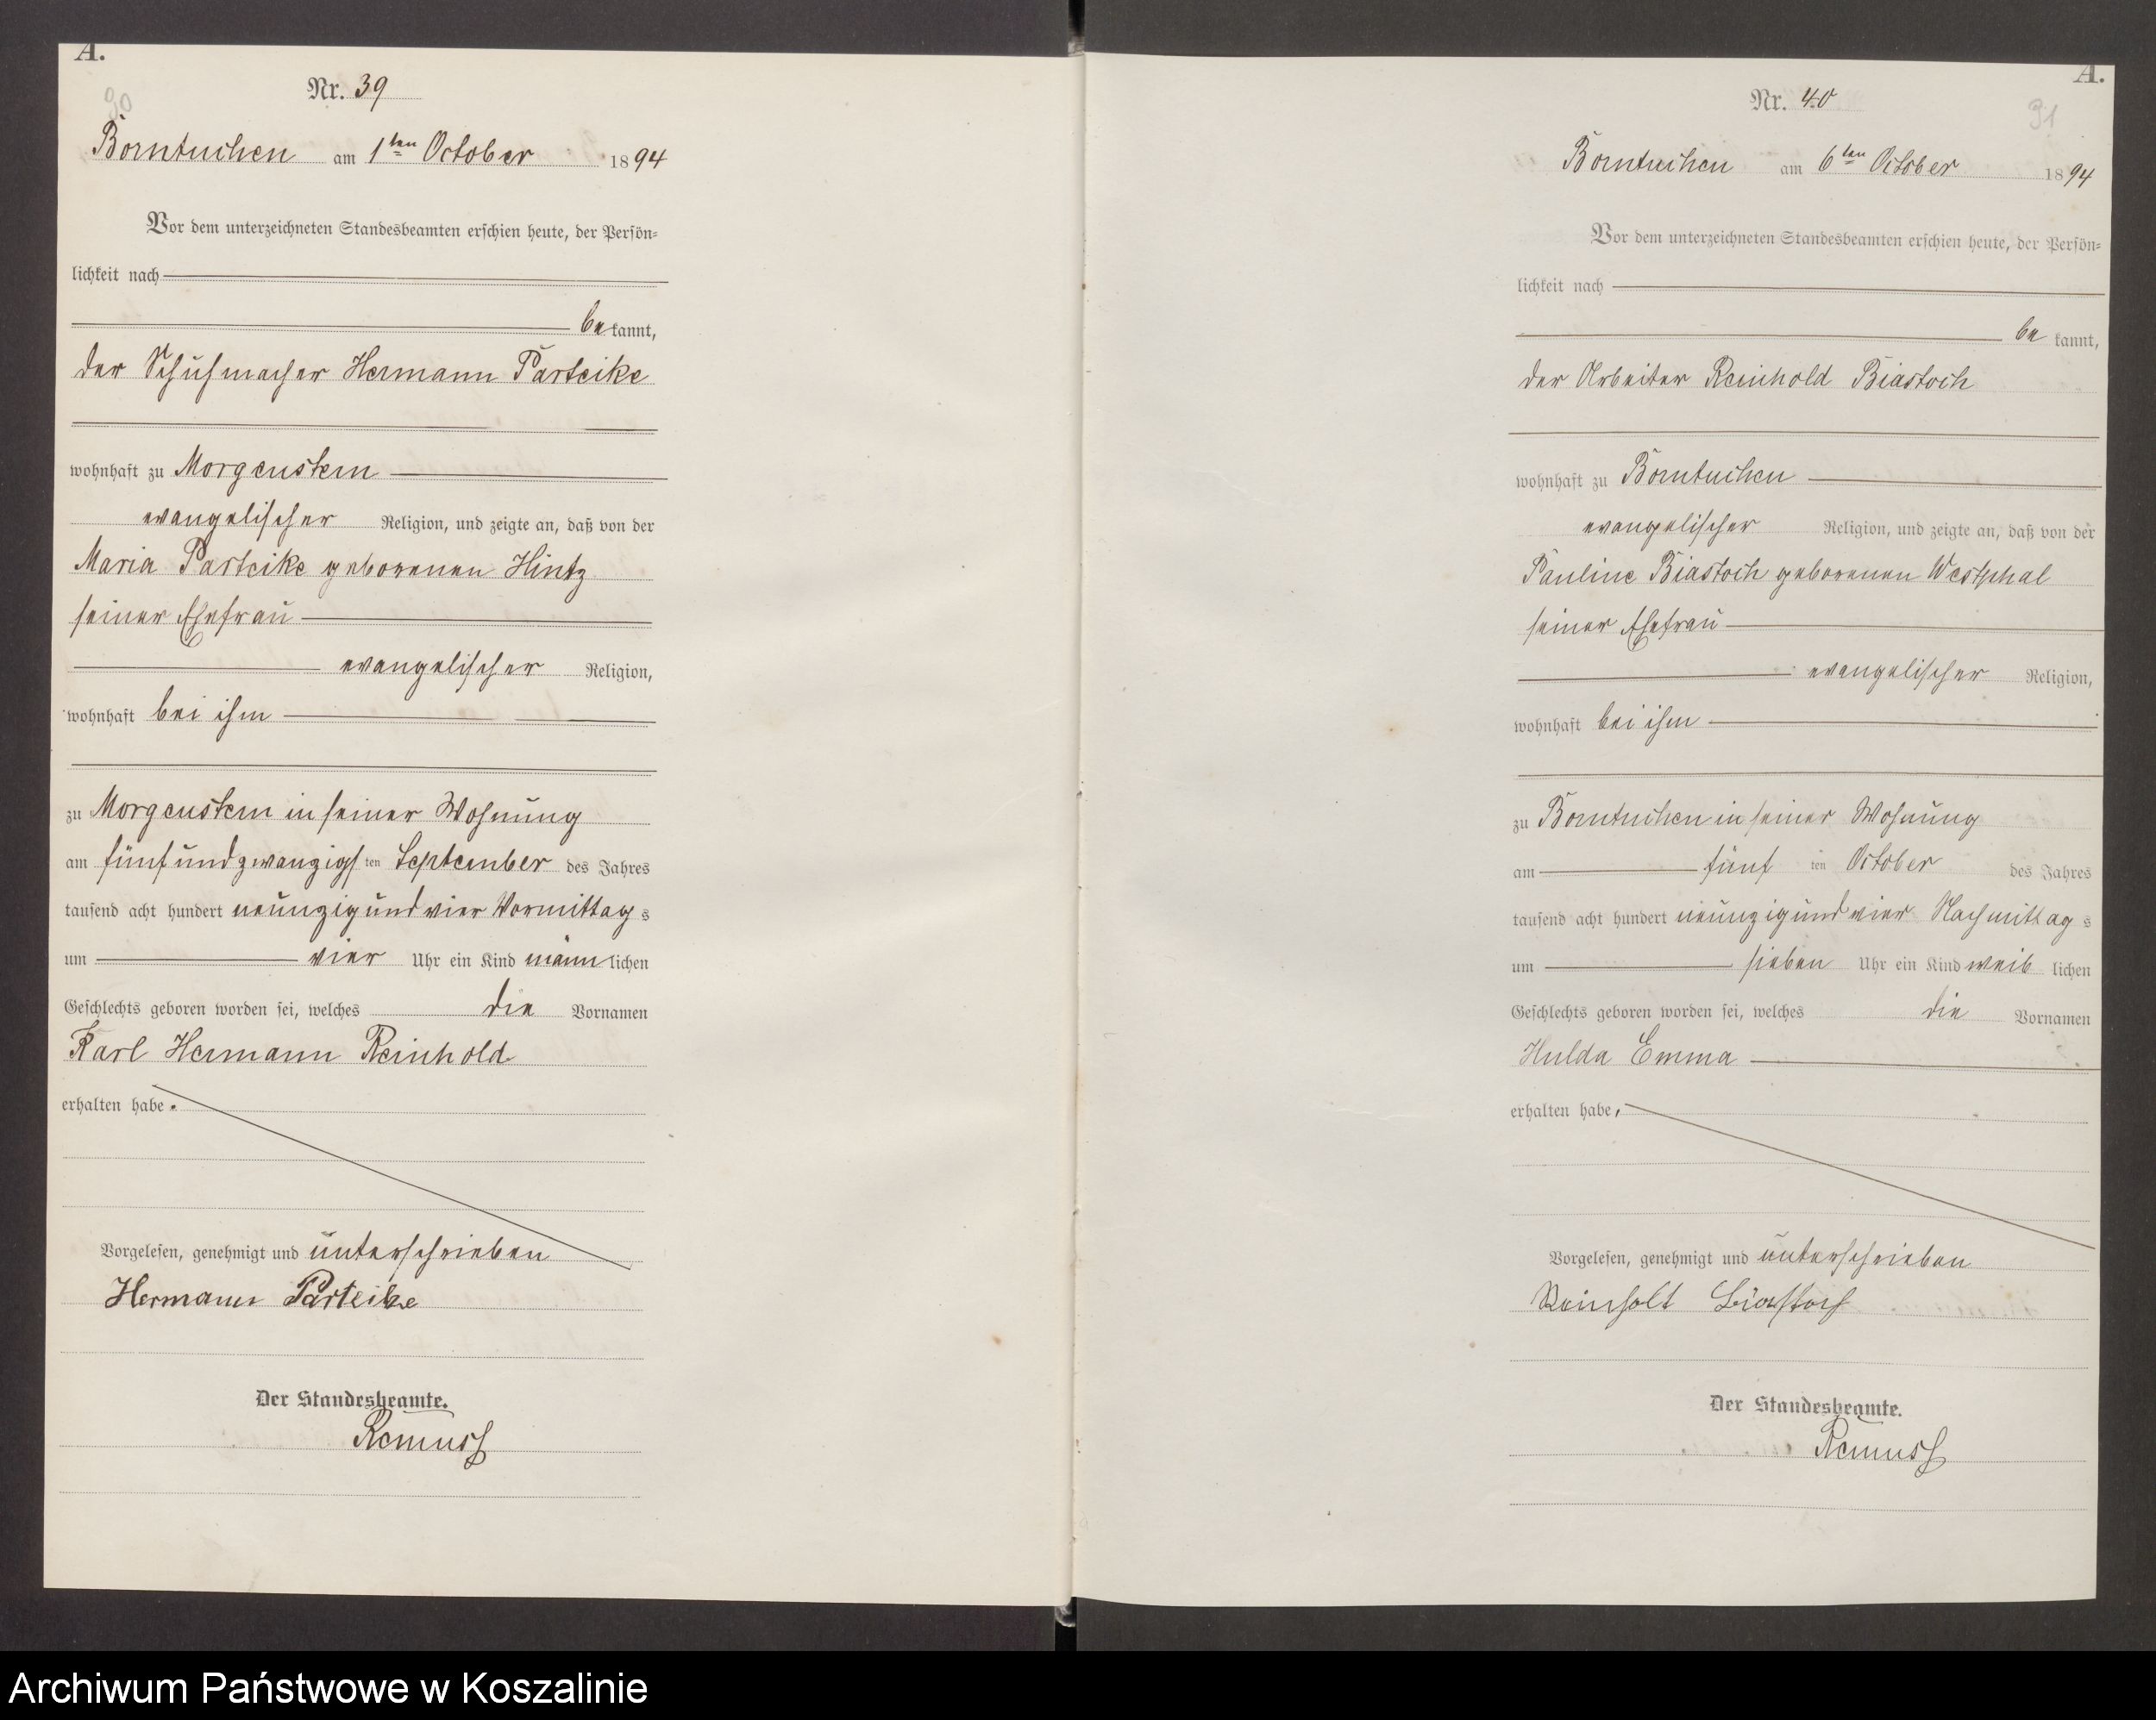 A.
Nr. 39
90
Borntuchen am 1ten October 1894
Vor dem unterzeichneten Standesbeamten erschien heute, der Persön-
lichkeit nach
bekannt,
der Schuhmacher Hermann Parteike
wohnhaft zu Morgenstern
evangelischer Religion, und zeigte an, daß von der
Maria Parteike geborenen Hintz
seiner Ehefrau
evangelischer Religion,
wohnhaft bei ihm
zu Morgenstern in seiner Wohnung
am fünfundzwanzigsten September des Jahres
tausend acht hundert neunzig und vier Vormittags
um vier Uhr ein Kind männlichen
Geschlechts geboren worden sei, welches die Vornamen
Karl Hermann Reinhold
erhalten habe.
Vorgelesen, genehmigt und unterschrieben
Hermann Parteike
Der Standesbeamte.
Remuss
A.
Nr. 40
91
Borntuchen am 6ten October 1894
Vor dem unterzeichneten Standesbeamten erschien heute, der Persön-
lichkeit nach
bekannt,
der Arbeiter Reinhold Biastoch
wohnhaft zu Borntuchen
evangelischer Religion, und zeigte an, daß von der
Pauline Biastoch geborenen Westphal
seiner Ehefrau
evangelischer Religion,
wohnhaft bei ihm
zu Borntuchen in seiner Wohnung
am fünften October des Jahres
tausend acht hundert neunzig und vier Nachmittags
um sieben Uhr ein Kind weiblichen
Geschlechts geboren worden sei, welches die Vornamen
Hulda Emma
erhalten habe.
Vorgelesen, genehmigt und unterschrieben
Reinholt Biastoch
Der Standesbeamte.
Remuss
Archiwum Państwowe w Koszalinie